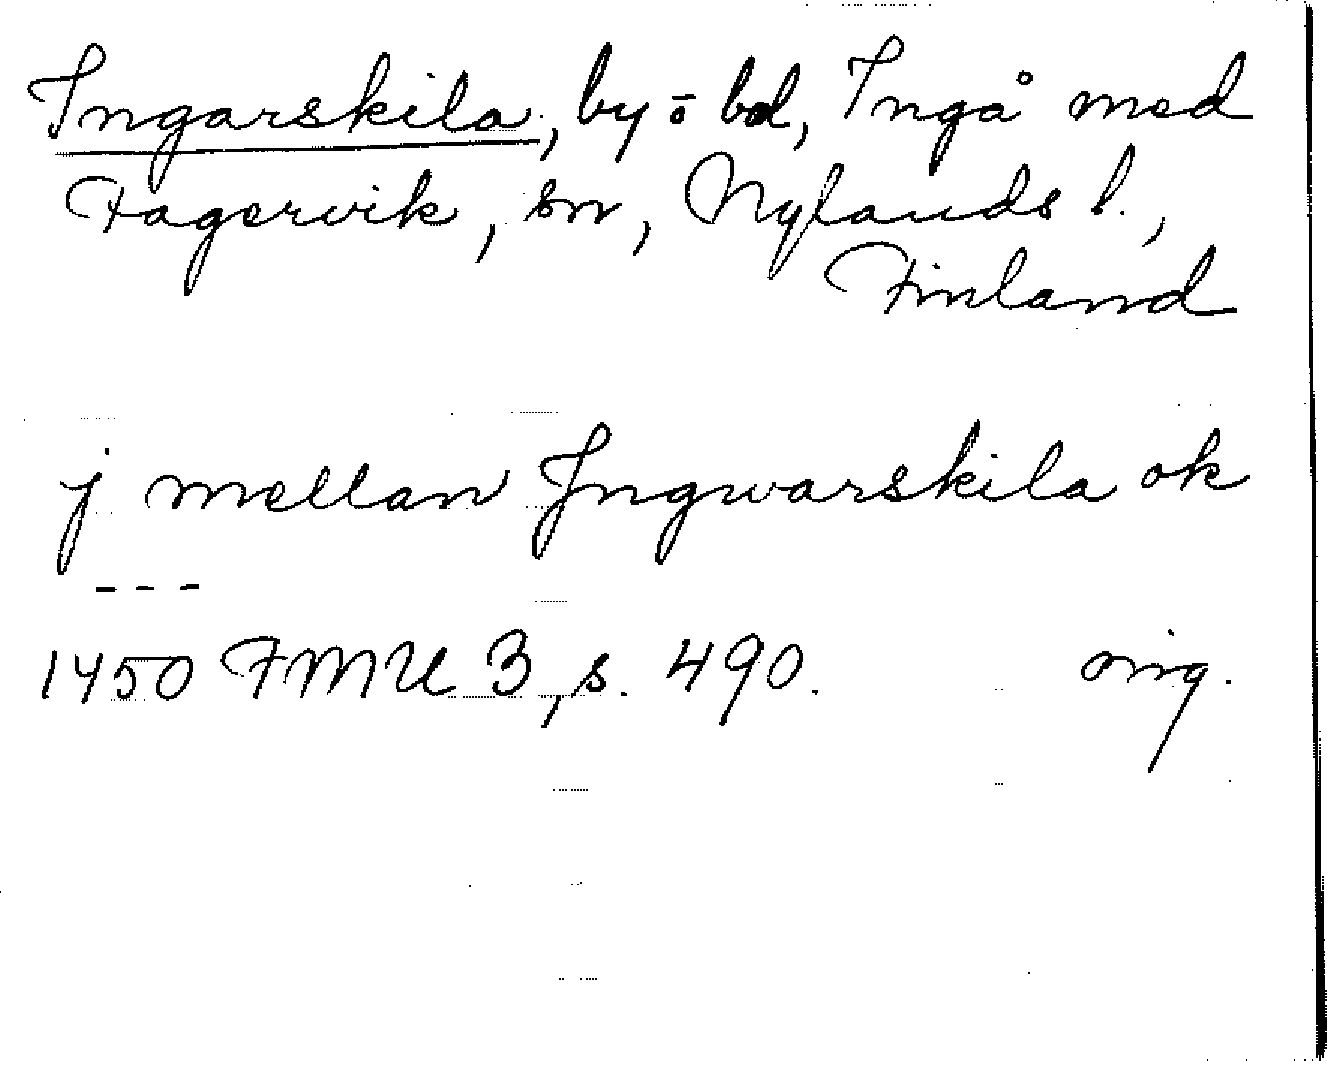 Ingarskila, by o bol, Ingå med
Fagervik, sn, Nylands l.,
Finland
j mellan Jngwarskila ok
---
1450 FMU 3, s. 490. orig.